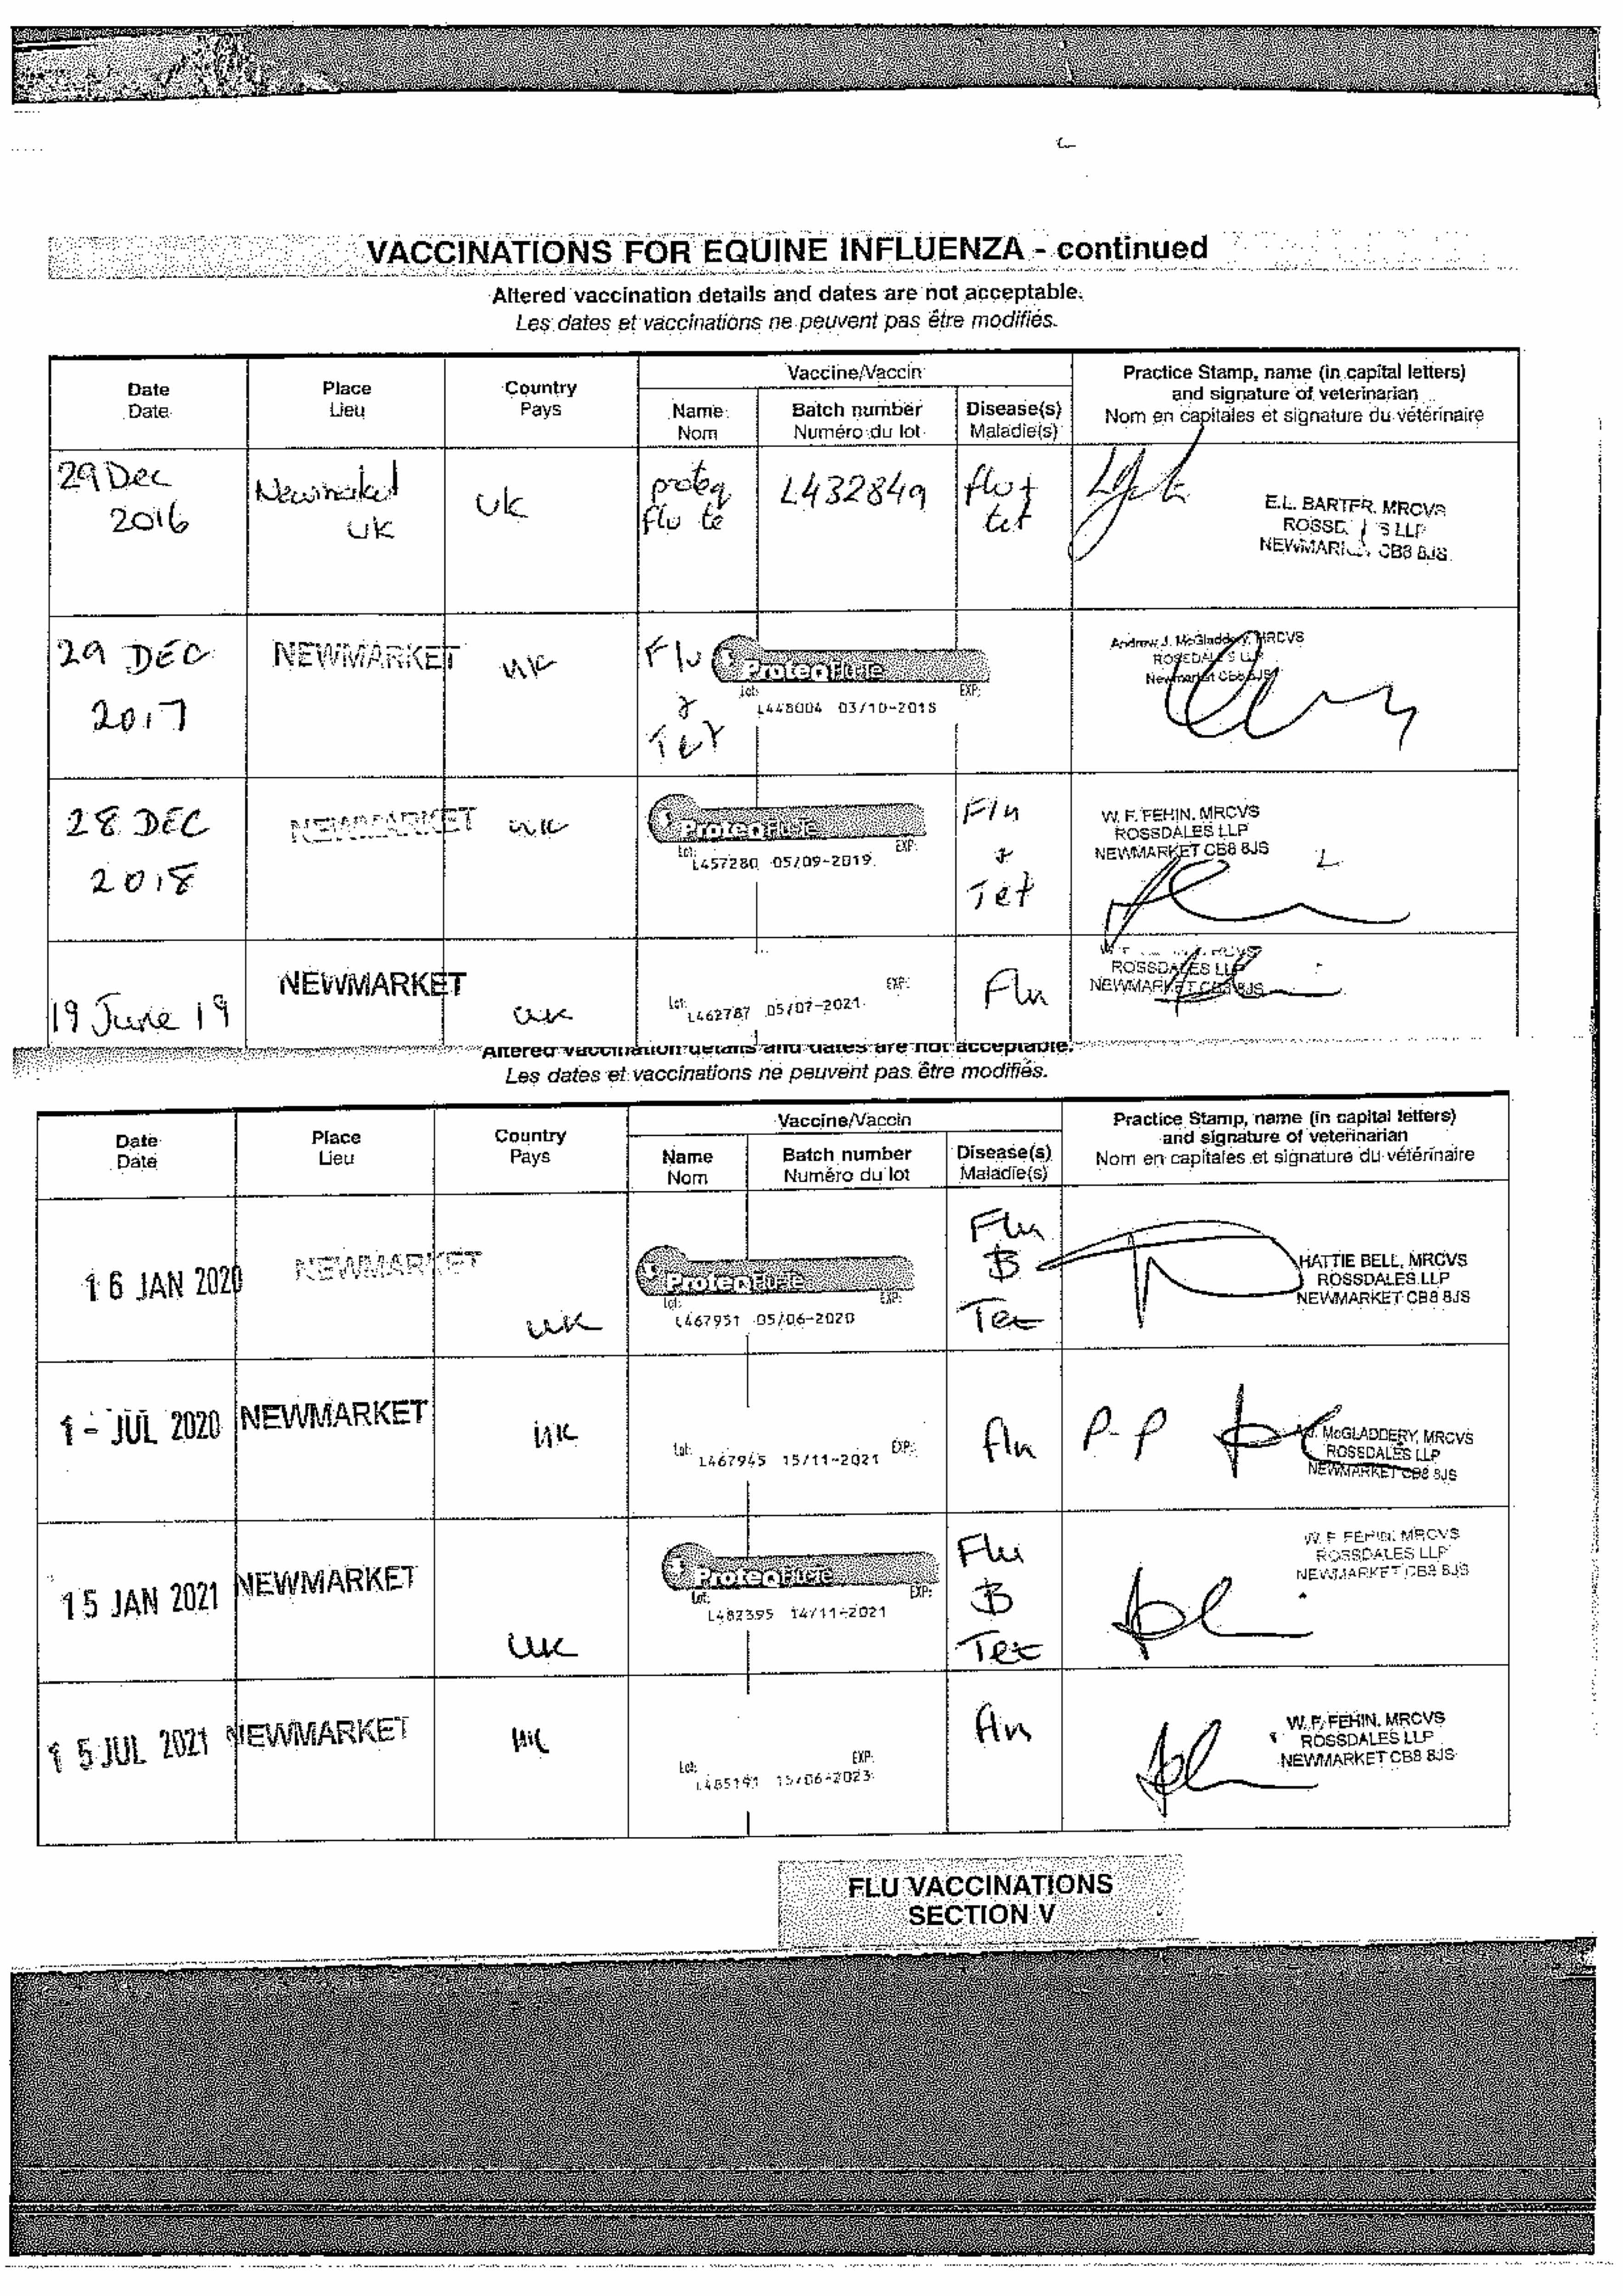 VACCINATIONS FOR EQUINE INFLUENZA - continued
Altered vaccination details and dates are not acceptable.
Les dates et vaccinations ne peuvent pas être modifiés.
Date
Date
Place
Lieu
Country
Pays
Vaccine/Vaccin
Name
Nom
Batch number
Numéro du lot
Disease(s)
Maladie(s)
Practice Stamp, name (in capital letters)
and signature of veterinarian
Nom en capitales et signature du vétérinaire
29 Dec
2016
Newmarket
UK
UK
proteq
flu te
L432849
flu +
tet
E.L. BARTER. MRCVS
LLP
CB8 8JS.
29 DEC
2017
NEWMARKET
UK
Flu
&
Tet
ProteqFlu-Te
Lot:
EXP:
L448004 03/10-2018
Andrew J. McGladdery, MRCVS
ROSSDALES LLP
Newmarket CB8 8JS
28 DEC
2018
NEWMARKET
UK
ProteqFlu-Te
Lot:
EXP:
L457280 05/09-2019
Flu
&
Tet
W. F. FEHIN. MRCVS
ROSSDALES LLP
NEWMARKET CB8 8JS
19 June 19
NEWMARKET
UK
Lot:
EXP:
L462787 05/07-2021
Flu
ROSSDALES LLP
NEWMARKET CB8 8JS
Altered vaccination details and dates are not acceptable.
Les dates et vaccinations ne peuvent pas être modifiés.
Date
Date
Place
Lieu
Country
Pays
Vaccine/Vaccin
Name
Nom
Batch number
Numéro du lot
Disease(s)
Maladie(s)
Practice Stamp, name (in capital letters)
and signature of veterinarian
Nom en capitales et signature du vétérinaire
16 JAN 2020
NEWMARKET
UK
ProteqFlu-Te
Lot:
EXP:
L467951 05/06-2020
Flu
&
Tet
HATTIE BELL, MRCVS
ROSSDALES LLP
NEWMARKET CB8 8JS
1 - JUL 2020
NEWMARKET
UK
Lot:
EXP:
L467945 15/11-2021
flu
P-P
McGLADDERY, MRCVS
ROSSDALES LLP
NEWMARKET CB8 8JS
15 JAN 2021
NEWMARKET
UK
ProteqFlu-Te
Lot:
EXP:
L482395 14/11-2021
Flu
&
Tet
W. F. FEHIN. MRCVS
ROSSDALES LLP
NEWMARKET CB8 8JS
15 JUL 2021
NEWMARKET
UK
Lot:
EXP:
L485191 15/06-2023
Flu
W. F. FEHIN. MRCVS
ROSSDALES LLP
NEWMARKET CB8 8JS
FLU VACCINATIONS
SECTION V